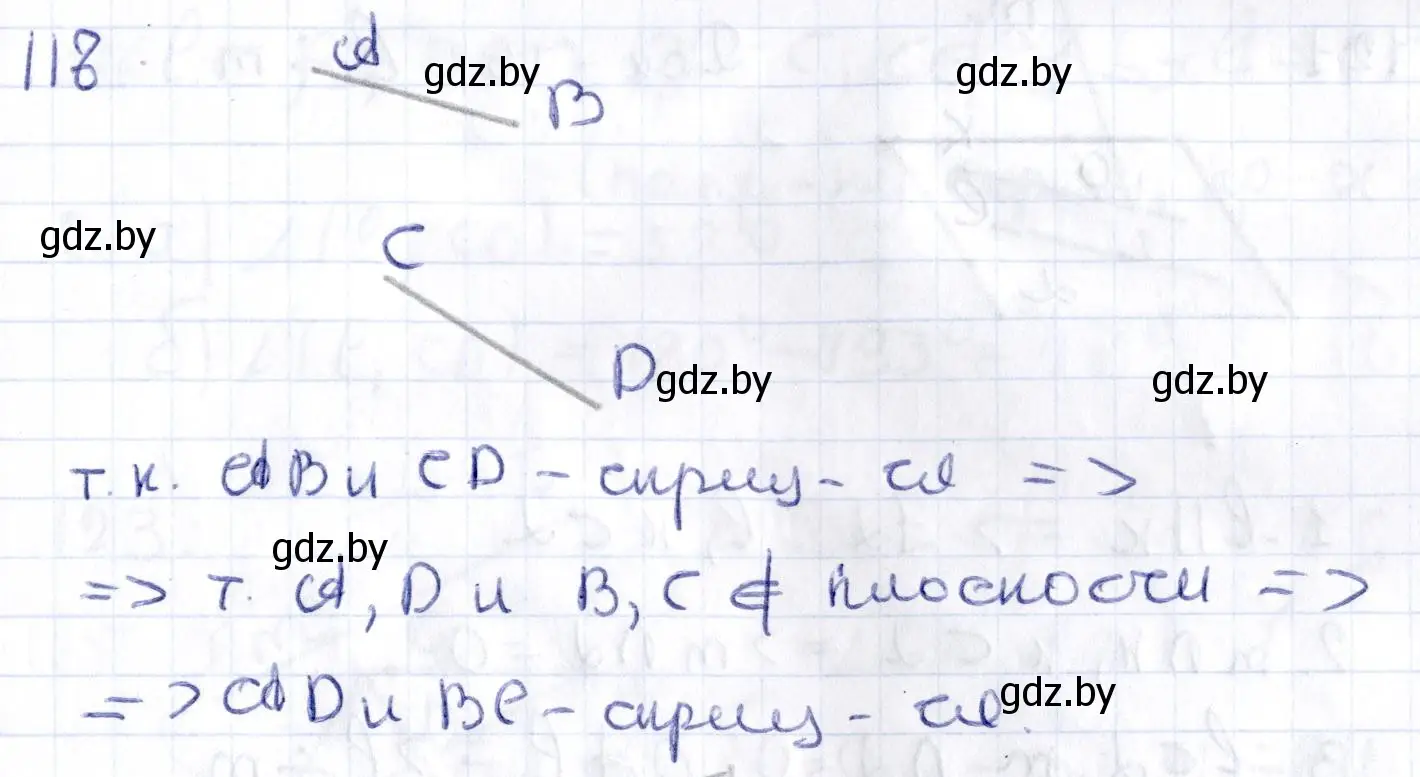 118 A gdz.by gdz.by
B
gdz.by C
D gdz.by gdz.by
т.к. AB и CD - скрещ-ся =>
gdz.by
=> т. A, D и B, C ∉ плоскости =>
=> AD и BC - скрещ-ся. gdz.by